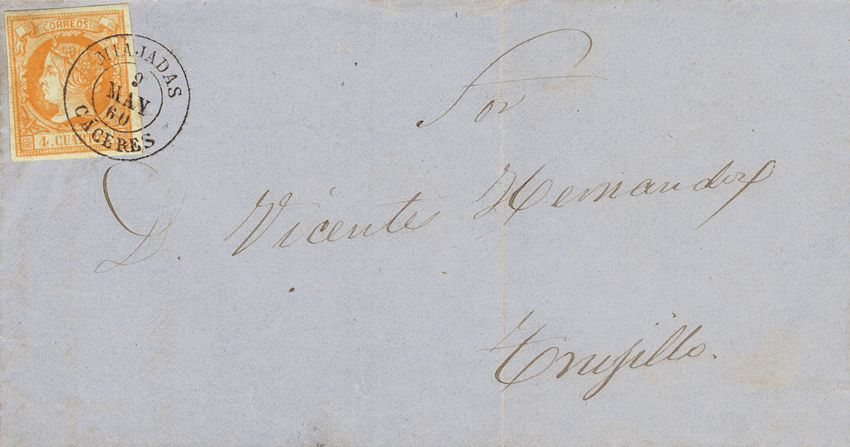 CORREOS
4. CUA
MIAJADAS
9
MAY
60
CACERES
Sor
D. Vicente Hernandez
Trujillo.